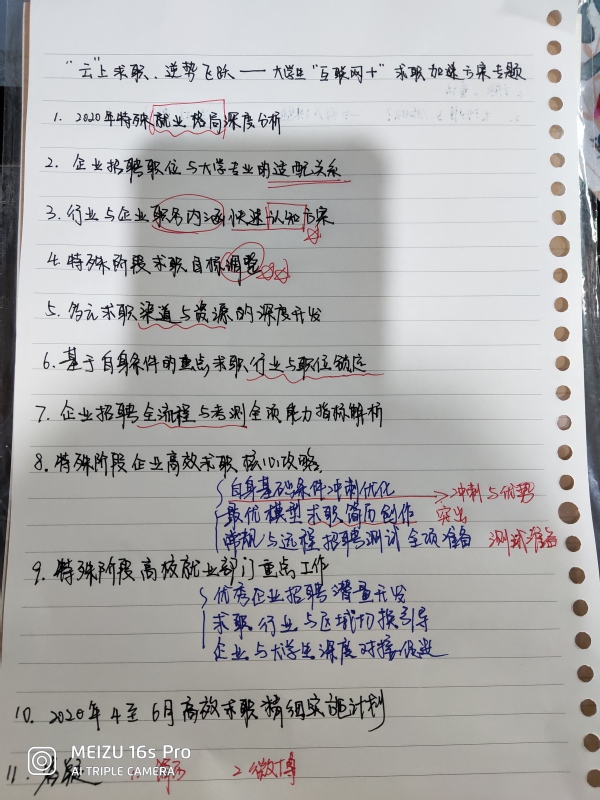 “云”上求职、逆势飞跃——大学生“互联网+”求职加速方案专题
1. 2020年特殊就业格局深度分析
2. 企业招聘职位与大学专业的适配关系
3. 行业与企业职务内涵快速认知方案
4. 特殊阶段求职目标调整
5. 多元求职渠道与资源的深度开发
6. 基于自身条件的重点求职行业与职位锁定
7. 企业招聘全流程与考测全项能力指标解析
8. 特殊阶段企业高效求职核心攻略
自身基础条件冲刺优化 冲刺与优势
最优模型求职简历创作 突出
常规与远程招聘测试全项准备 测试准备
9. 特殊阶段高校就业部门重点工作
优秀企业招聘潜量开发
求职行业与区域切换引导
企业与大学生深度对接促进
10. 2020年4至6月高效求职精细实施计划
11. 答疑 2 微博
MEIZU 16s Pro
AI TRIPLE CAMERA